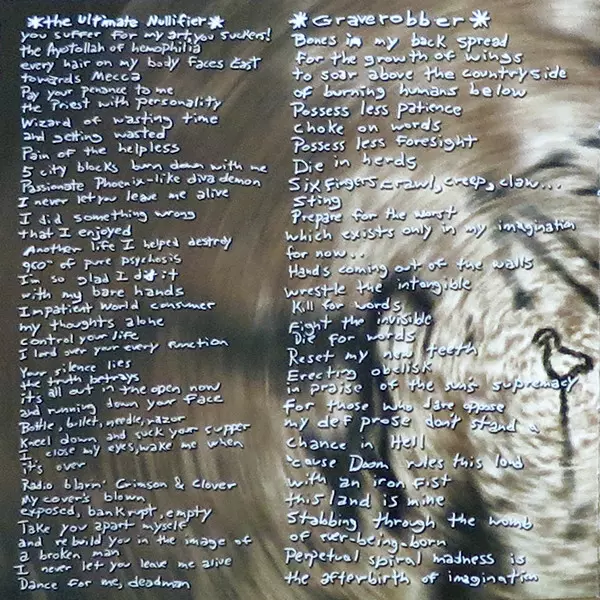 *the Ultimate Nullifier*
you suffer for my art, you suckers!
the Ayotollah of hemophilia
every hair on my body faces East
towards Mecca
Pay your penance to me
the Priest with personality
Wizard of wasting time
and getting wasted
Pain of the helpless
5 city blocks burn down with me
Passionate Phoenix-like diva demon
I never let you leave me alive
I did something wrong
that I enjoyed
Another life I helped destroy
900° of pure psychosis
I'm so glad I did it
with my bare hands
Impatient World consumer
my thoughts alone
control your life
I lord over your every function
Your silence lies
the truth betrays
it's all out in the open now
and running down your face
Bottle, bullet, needle, razor
Kneel down and suck your supper
I close my eyes, wake me when
it's over
Radio blarin' Crimson & Clover
My cover's blown
exposed, bankrupt, empty
Take you apart myself
and rebuild you in the image of
a broken man
I never let you leave me alive
Dance for me, deadman
*Graverobber*
Bones in my back spread
for the growth of wings
to soar above the countryside
of burning humans below
Possess less patience
choke on words
Possess less foresight
Die in herds
Six fingers crawl, creep, claw...
Sting
Prepare for the worst
which exists only in my imagination
for now..
Hands coming out of the walls
wrestle the intangible
Kill for words
Fight the invisible
Die for words
Reset my new teeth
Erecting obelisk
in praise of the sun's supremacy
for those who dare oppose
my def prose don't stand a
chance in Hell
'cause Doom rules this land
with an iron fist
this land is mine
Stabbing through the womb
of ever-being-born
Perpetual spiral madness is
the afterbirth of imagination